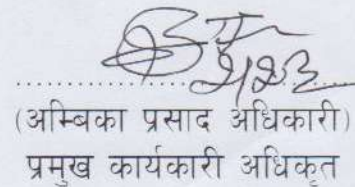 (अम्बिका प्रसाद अधिकारी)
प्रमुख कार्यकारी अधिकृत